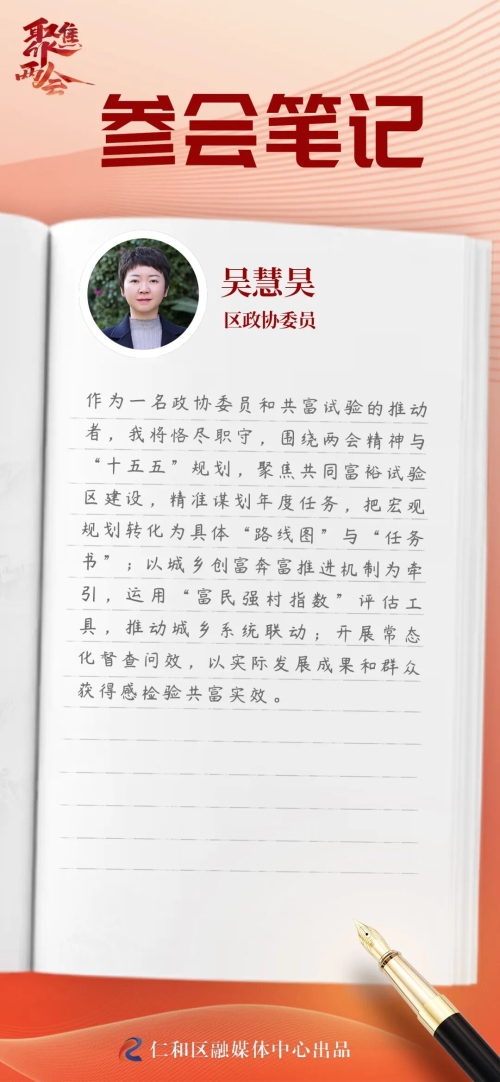 聚焦
两会
参会笔记
吴慧昊
区政协委员
作为一名政协委员和共富试验的推动
者，我将恪尽职守，围绕两会精神与
“十五五”规划，聚焦共同富裕试验
区建设，精准谋划年度任务，把宏观
规划转化为具体“路线图”与“任务
书”；以城乡创富奔富推进机制为牵
引，运用“富民强村指数”评估工
具，推动城乡系统联动；开展常态
化督查问效，以实际发展成果和群众
获得感检验共富实效。
仁和区融媒体中心出品